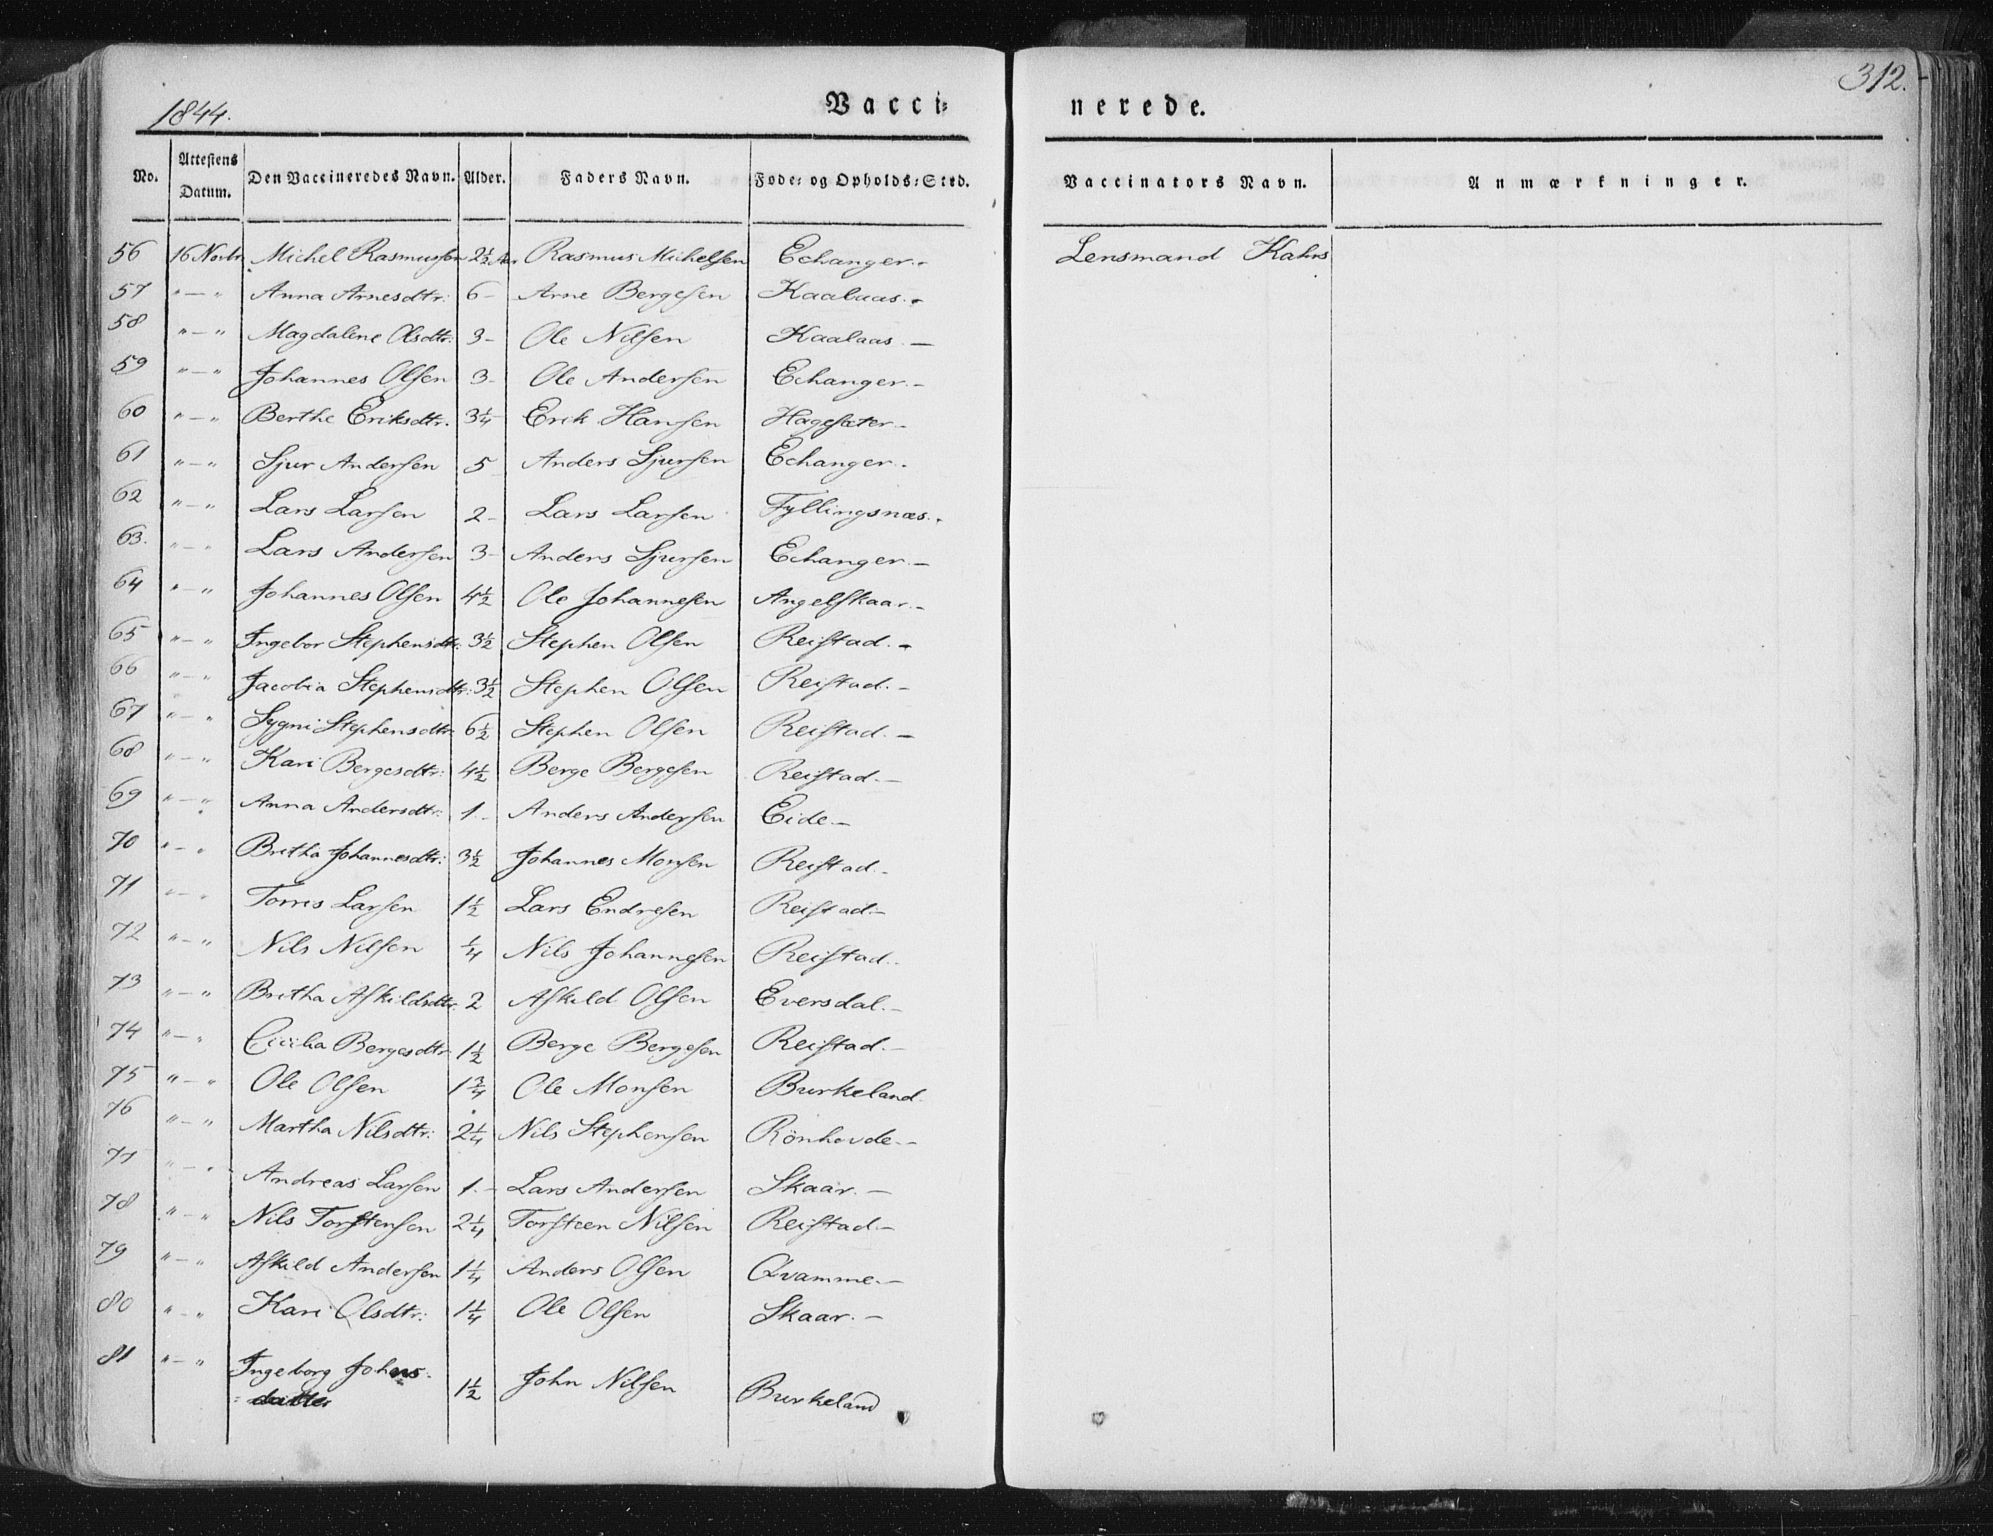 312.
1844. Vacci= nerede.
No. Attestens Datum. Den Vaccineredes Navn. Alder. Faders Navn. Føde= og Opholds=Sted. Vaccinators Navn. Anmærkninger.
56 16 Novbr. Michel Rasmussen 2½ Aar Rasmus Michelsen Echanger.- Lensmand Kahrs
57 " — " Anna Arnesdtr: 6 - Arne Bergesen Kaalaas.-
58 " — " Magdalene Olsdtr: 3 - Ole Nilsen Kaalaas.-
59 " — " Johannes Olsen 3 - Ole Andersen Echanger.-
60 " — " Berthe Eriksdtr. 3¼ Erik Hansen Hagesæter.-
61 " — " Sjur Andersen 5 Anders Sjursen Echanger.-
62 " — " Lars Larsen 2 - Lars Larsen Fyllingsnæs.-
63. " — " Lars Andersen 3 - Anders Sjursen Echanger.-
64 " — " Johannes Olsen 4½ Ole Johannesen Angelskaar.-
65 " — " Ingebor Stephensdtr: 3½ Stephen Olsen Reistad.-
66 " — " Jacobia Stephensdtr: 3½ Stephen Olsen Reistad.-
67 " — " Sygni Stephensdtr: 6½ Stephen Olsen Reistad.-
68 " — " Kari Bergesdtr: 4½ Berge Bergesen Reistad.-
69 " — " Anna Andersdtr: 1 - Anders Andersen Eide.-
70 " — " Britha Johannesdtr: 3½ Johannes Monsen Reistad.-
71 " — " Torres Larsen 1½ Lars Endresen Reistad.-
72 " — " Nils Nilsen ¼ Nils Johannesen Reistad.-
73 " — " Britha Askildsdtr. 2 Askild Olsen Eversdal.-
74 " — " Cicilia Bergesdtr. 1½ Berge Bergesen Reistad.-
75 " — " Ole Olsen 1¾ Ole Monsen Burkeland.
76 " — " Martha Nilsdtr: 2¼ Nils Stephensen Rönhovde.-
77 " — " Andreas Larsen 1.- Lars Andersen Skaar.-
78 " — " Nils Torstensen 2¼ Torsteen Nilsen Reistad.-
79 " — " Askild Andersen 1¼ Anders Olsen Qvamme.-
80 " — " Kari Olsdtr: 1¼ Ole Olsen Skaar.-
81 " — " Ingeborg Johns- 1½ John Nilsen Burkeland
=datter